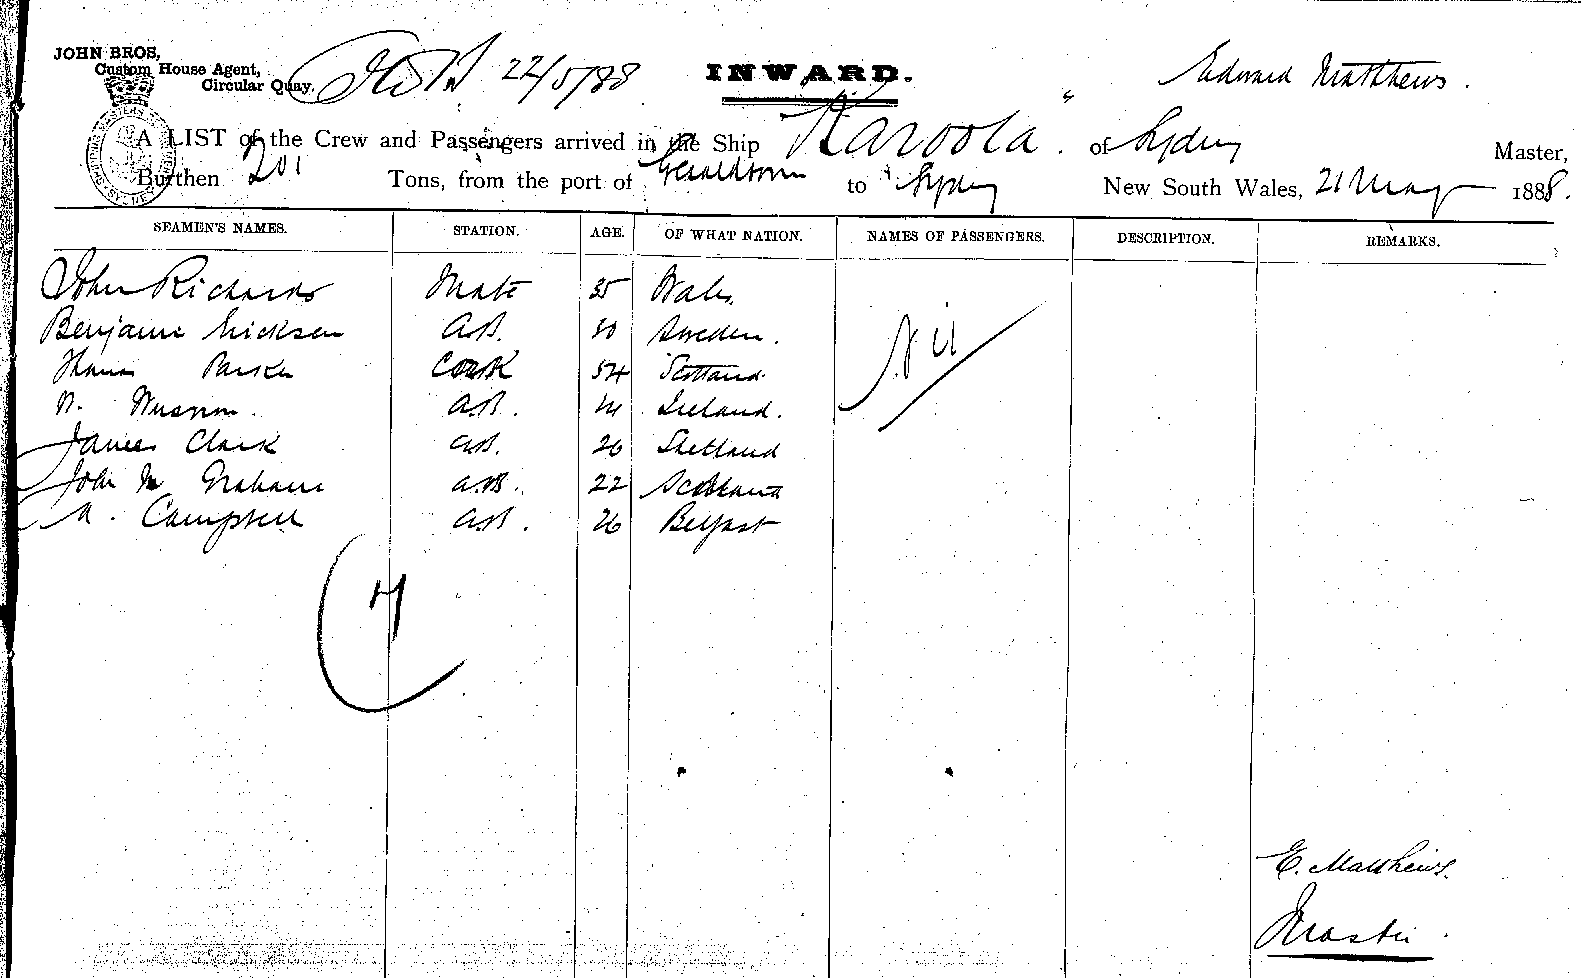 JOHN BROS,
Custom House Agent,
Circular Quay.
22/5/88
INWARD.
Edward Matthews.
A LIST of the Crew and Passengers arrived in the Ship "Karoola" of Sydney Master,
Burthen 201 Tons, from the port of Geraldton to Sydney New South Wales, 21 May 1888.
SEAMEN'S NAMES. STATION. AGE. OF WHAT NATION. NAMES OF PASSENGERS. DESCRIPTION. REMARKS.
John Richards Mate 35 Wales
Benjamin Ericksen A.B. 30 Sweden.
Thomas Parker Cook 54 Scotland.
A.B. Ireland.
James Clark A.B. 26 Shetland
John Graham A.B. 22 Scotland
A. Campbell A.B. 26 Belfast
Nil
7
E. Matthews.
Master.